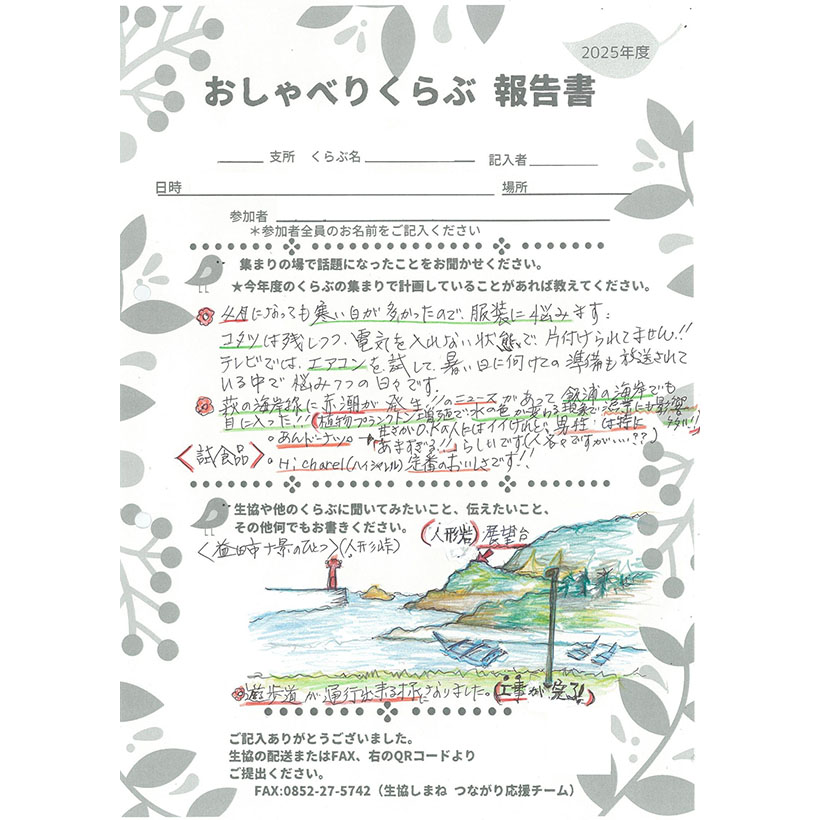 2025年度
おしゃべりくらぶ 報告書
支所 くらぶ名 記入者
日時 場所
参加者
＊参加者全員のお名前をご記入ください
集まりの場で話題になったことをお聞かせください。
★今年度のくらぶの集まりで計画していることがあれば教えてください。
4月になっても寒い日が多かったので、服装に悩みます。
コタツは残しつつ、電気を入れない状態で片付けられてません!!
テレビでは、エアコンを試して、暑い日に向けての準備も放送されて
いる中で悩みつつの日々です。
萩の海岸線に赤潮が発生!!のニュースがあって飯浦の海岸でも
目に入った!!!(植物プランクトン増殖で水の色が変わる現象で漁業にも影響
〈試食品〉
。あんドーナッツ。→甘さがOKの人にはイイけれど、男性は特に
"あますぎる!!"らしいです(人各々ですがい…??)
。Hi charel(ハイシャレル)定番のおいしさです!!
生協や他のくらぶに聞いてみたいこと、伝えたいこと、
その他何でもお書きください。
(人形岩)展望台
〈益田市十景のひとつ〉(人形峠)
遊歩道が通行出来る様になりました。(工事が完了)
ご記入ありがとうございました。
生協の配送またはFAX、右のQRコードより
ご提出ください。
FAX:0852-27-5742（生協しまね つながり応援チーム）